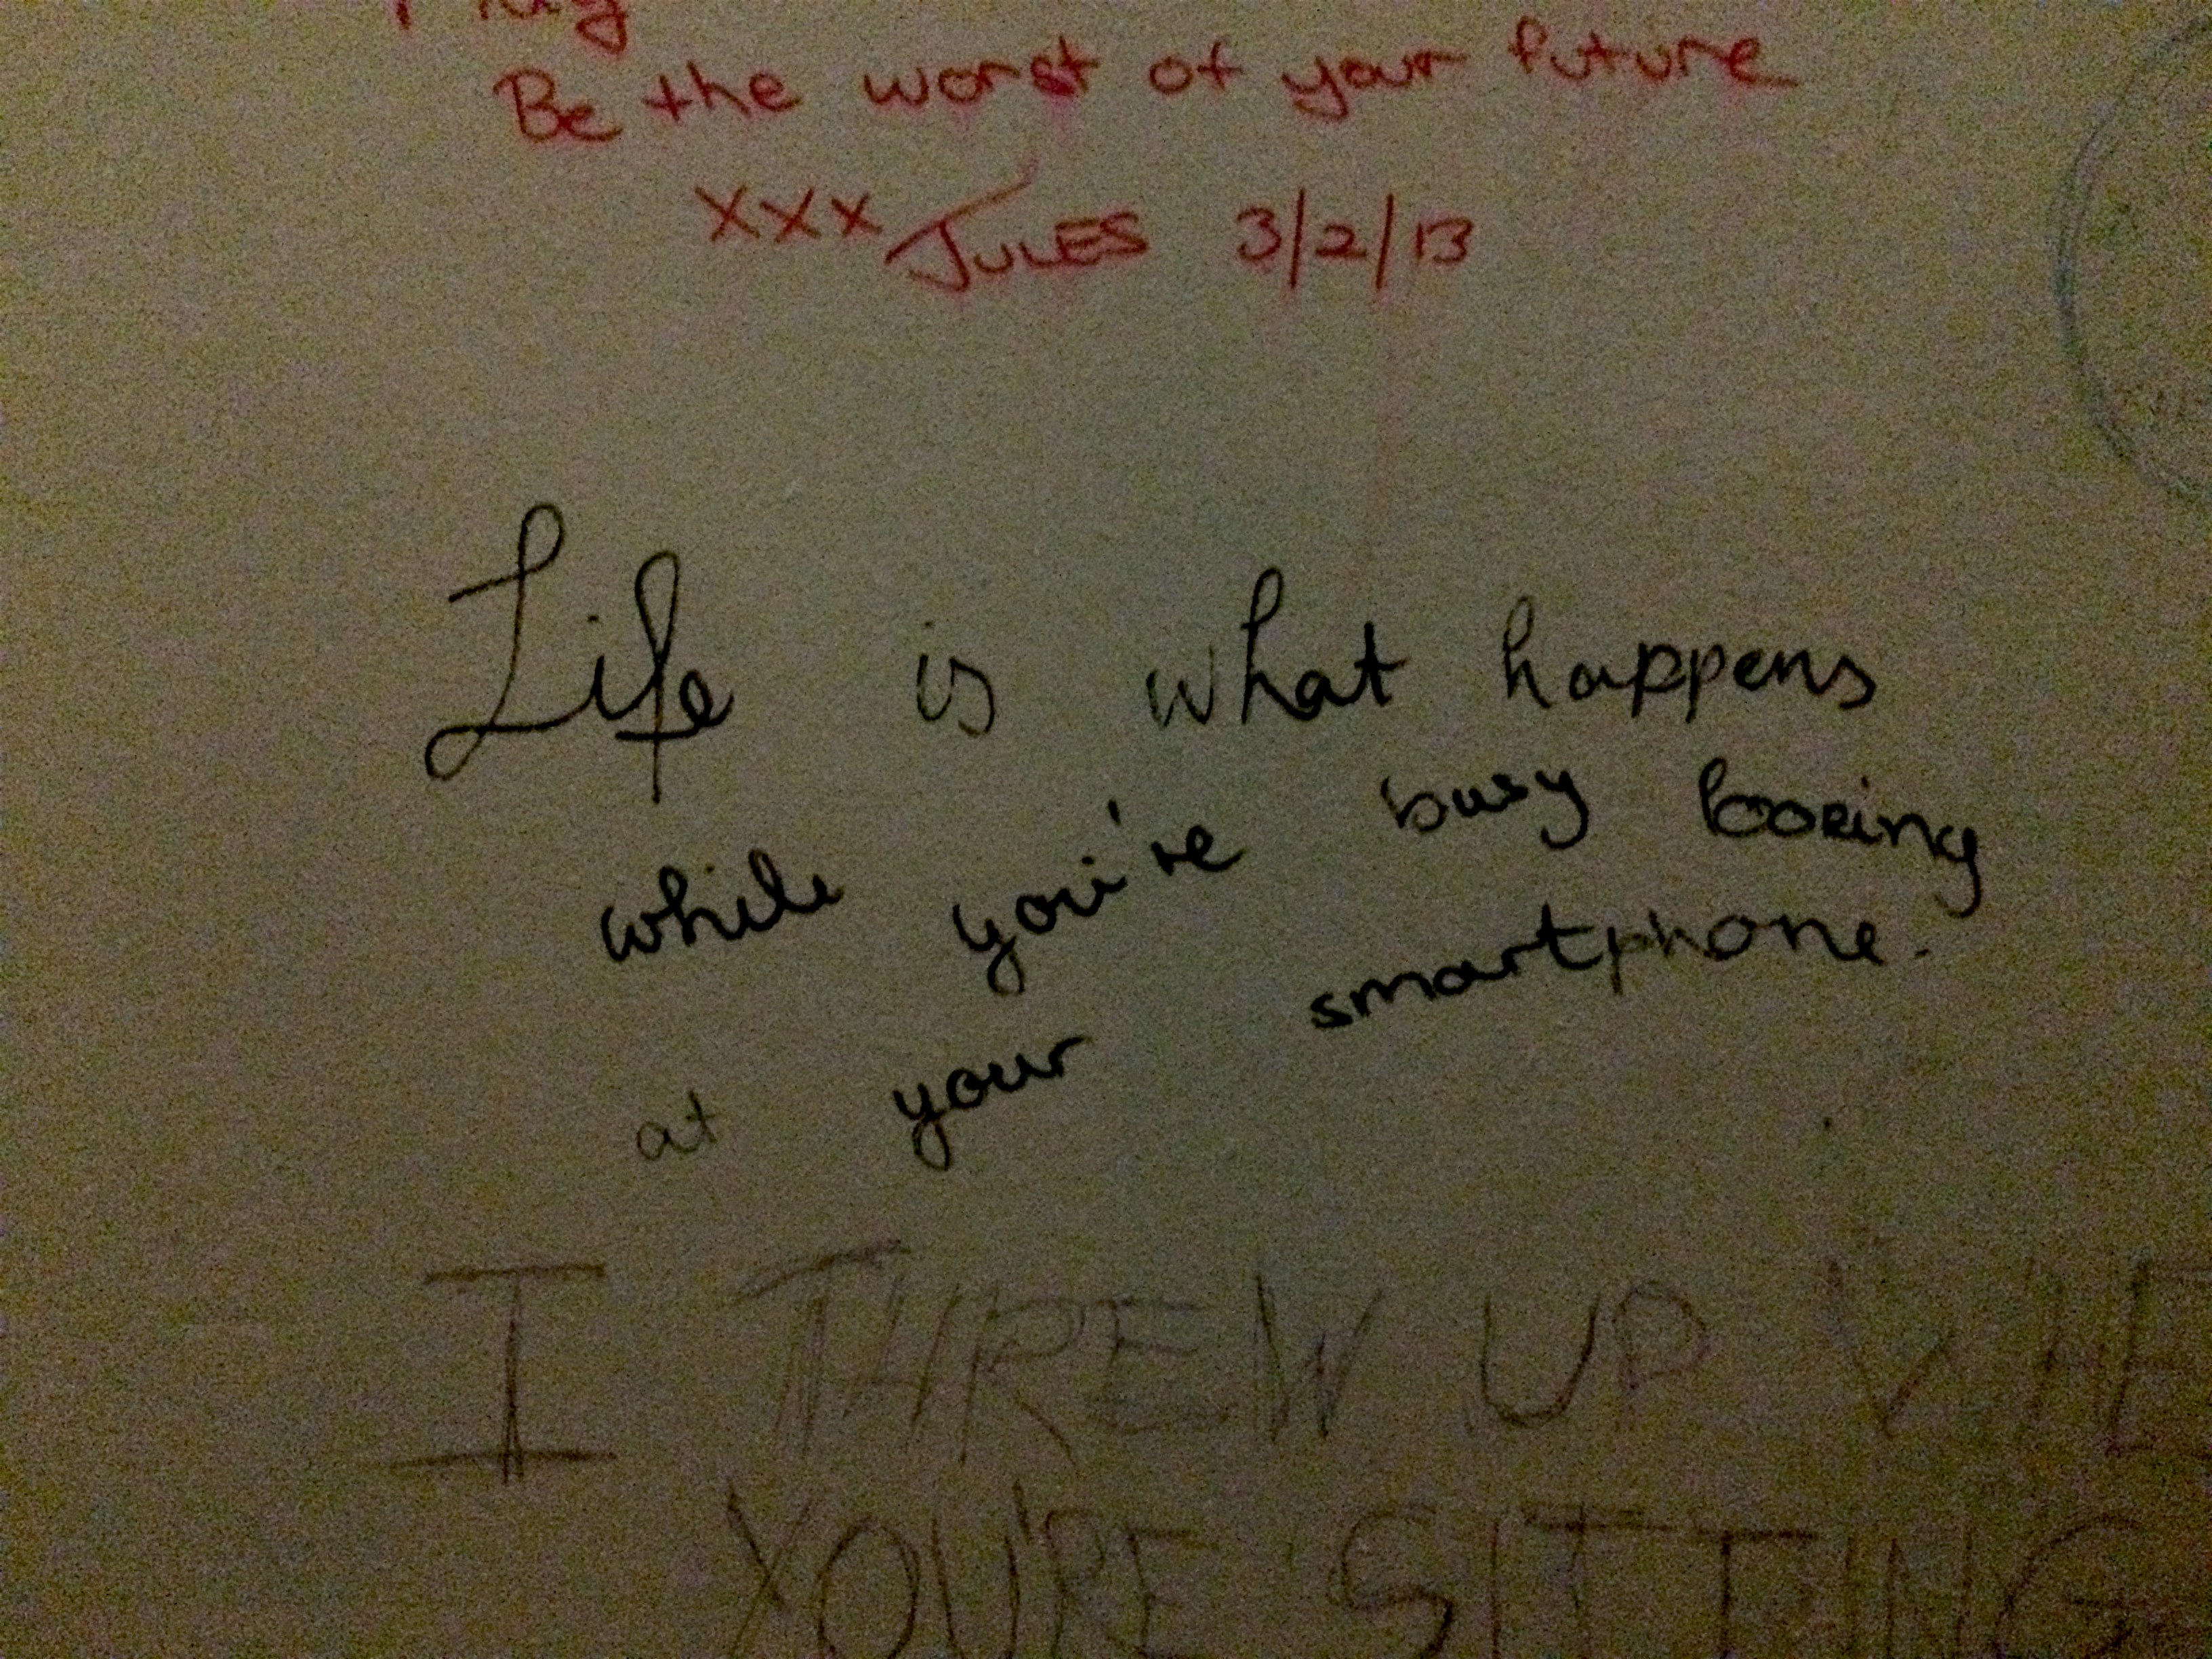 Be the worst of your future
xxx JULES 3/2/13
Life is what happens
while you're busy looking
at your smartphone.
I THREW UP WHE
YOU'RE SITTING